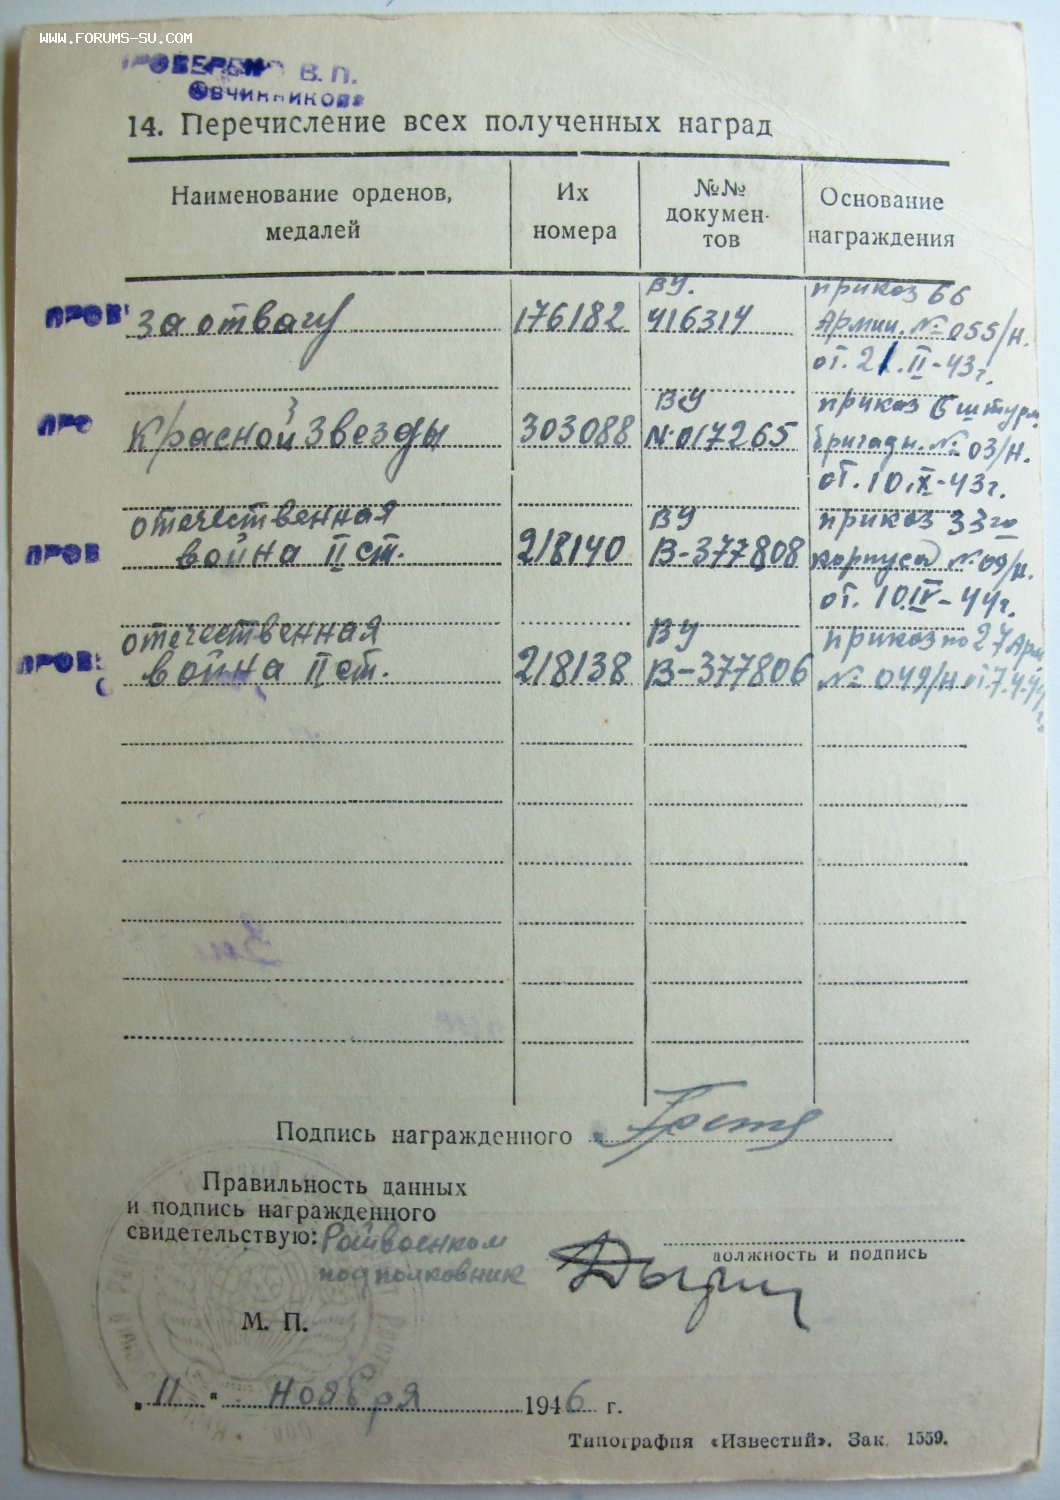 WWW.FORUMS-SU.COM
ПРОВЕРЕНО В. П.
ОВЧИННИКОВ
14. Перечисление всех полученных наград
Наименование орденов, медалей
Их номера
№№ докумен-тов
Основание награждения
ПРОВ
за отвагу
176182
ВУ.
416314
приказ 66
Армии. № 055/н.
от. 21.II-43г.
ПРО
Красной Звезды
303088
ВУ
N.017265
приказ 6 штурм
бригады. № 03/н.
от. 10.X-43г.
ПРОВ
отечественная
война II ст.
218140
ВУ
В-377808
приказ 33го
корпуса № 09/н.
от. 10.IV-44г.
ПРОВ
отечественная
война II ст.
218138
ВУ
В-377806
приказ по 27 Арм
№ 049/н от 7.4.44
г.
Подпись награжденного
Правильность данных
и подпись награжденного
свидетельствую: Райвоенком
подполковник
должность и подпись
М. П.
„11“ ноября 1946 г.
Типография «Известий». Зак. 1559.